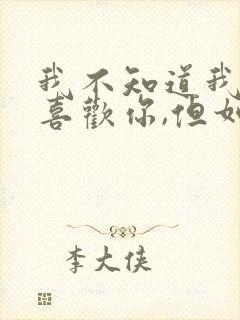 我不知道我
喜歡你,但如
李大侠